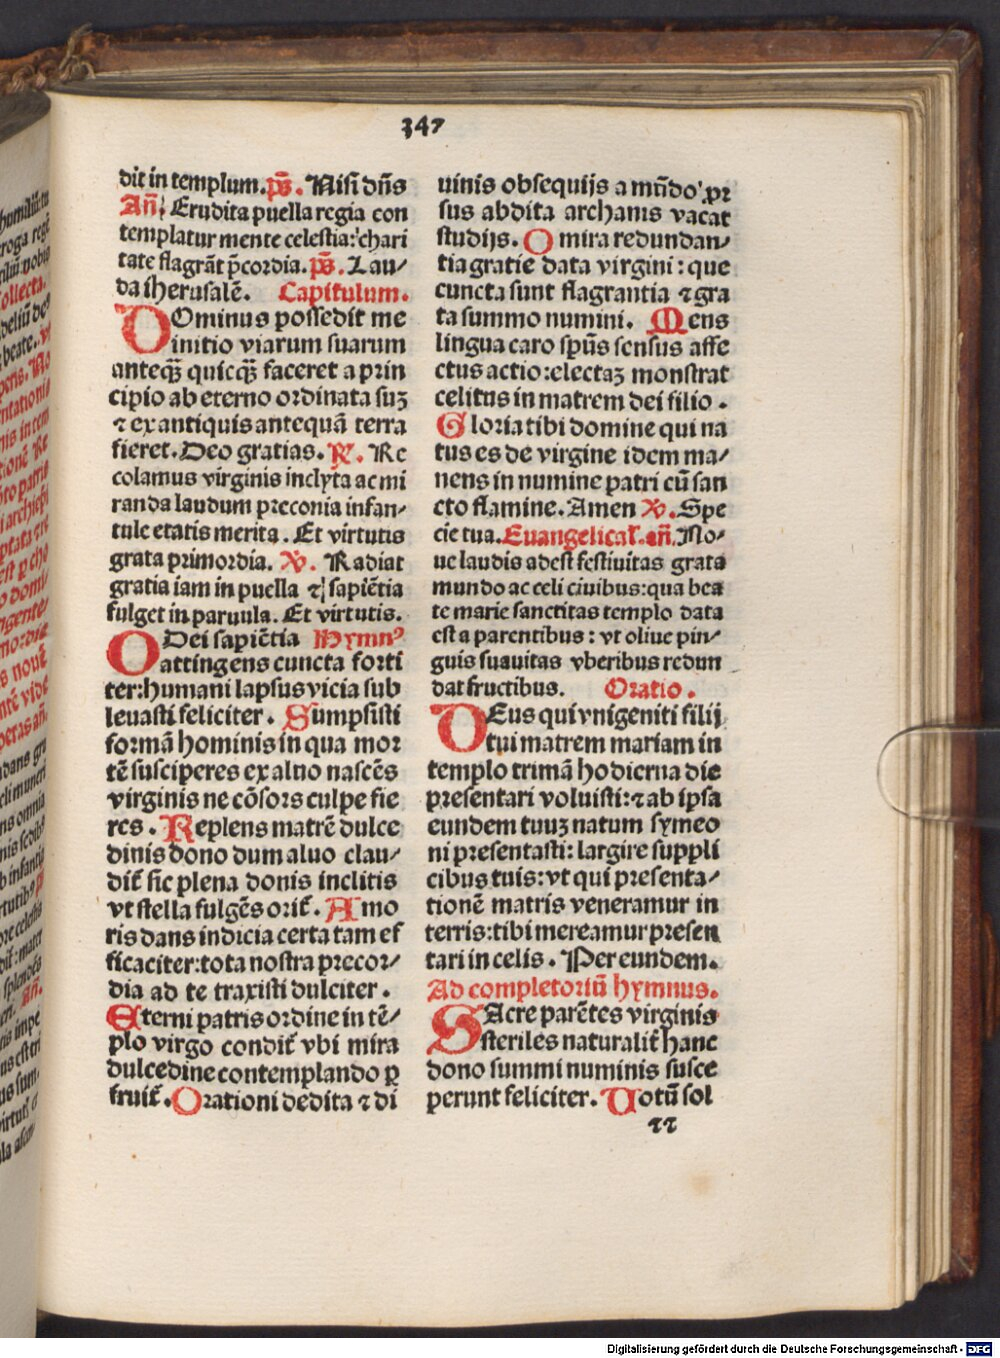 347
dit in templum. p̄s. Nisi dn̄s
Añ. Erudita puella regia con
templatur mente celestia: chari
tate flagrãt p̄cordia. p̄s. Lau-
da iherusalē. Capitulum.
DOminus possedit me
initio viarum suarum
anteq̃ȝ quicq̃ȝ faceret a prin
cipio ab eterno ordinata suȝ
⁊ ex antiquis antequã terra
fieret. Deo gratias. R̷. Re
colamus virginis inclyta ac mi
randa laudum preconia infan-
tule etatis merita. Et virtutis
grata primordia. V̷. Radiat
gratia iam in puella ⁊ sapiētia
fulget in paruula. Et virtutis.
O Dei sapiētia Hymnꝰ
attingens cuncta forti
ter: humani lapsus vicia sub
leuasti feliciter. Sumpsisti
formã hominis in qua mor
tē susciperes ex aluo nascēs
virginis ne cõsors culpe fie
res. Replens matrē dulce
dinis dono dum aluo clau-
dit̃ sic plena donis inclitis
vt stella fulgēs orit̃. Amo
ris dans indicia certa tam ef
ficaciter: tota nostra precor-
dia ad te traxisti dulciter.
Eterni patris ordine in tē-
plo virgo condit̃ vbi mira
dulcedine contemplando ꝑ
fruit̃. Orationi dedita ⁊ di
uinis obsequijs a mũdo pr
sus abdita archanis vacat
studijs. O mira redundan-
tia gratie data virgini: que
cuncta sunt flagrantia ⁊ gra
ta summo numini. Mens
lingua caro sp̄us sensus affe
ctus actio: electaȝ monstrat
celitus in matrem dei filio.
Gloria tibi domine qui na
tus es de virgine idem ma-
nens in numine patri cū san
cto flamine. Amen V̷. Spe
cie tua. Euangelical̃. añ. No-
ue laudis adest festiuitas grata
mundo ac celi ciuibus: qua bea
te marie sanctitas templo data
est a parentibus: vt oliue pin-
guis suauitas vberibus redun
dat fructibus. Oratio.
DEus qui vnigeniti filij
tui matrem mariam in
templo trimã hodierna die
presentari voluisti: ⁊ ab ipsa
eundem tuuȝ natum symeo
ni presentasti: largire suppli
cibus tuis: vt qui presenta-
tionē matris veneramur in
terris: tibi mereamur presen
tari in celis. Per eundem.
Ad completoriũ hymnus.
SAcre parētes virginis
steriles naturalit̃ hanc
dono summi numinis susce
perunt feliciter. Uotũ sol
⁊⁊
Digitalisierung gefördert durch die Deutsche Forschungsgemeinschaft - DFG